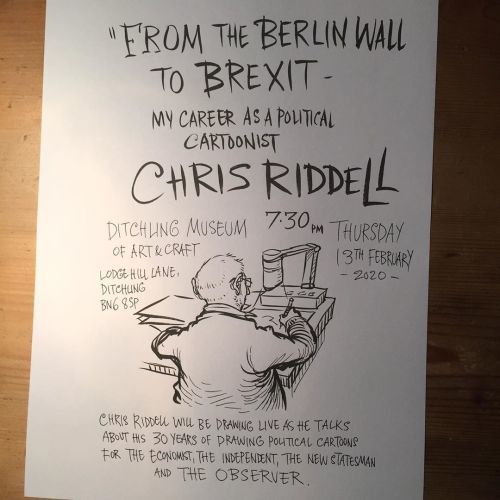 "FROM THE BERLIN WALL
TO BREXIT -
MY CAREER AS A POLITICAL
CARTOONIST
CHRIS RIDDELL
DITCHLING MUSEUM
OF ART & CRAFT
LODGE HILL LANE,
DITCHLING
BN6 8SP
7.30 PM
THURSDAY
13TH FEBRUARY
- 2020 -
CHRIS RIDDELL WILL BE DRAWING LIVE AS HE TALKS
ABOUT HIS 30 YEARS OF DRAWING POLITICAL CARTOONS
FOR THE ECONOMIST, THE INDEPENDENT, THE NEW STATESMAN
AND THE OBSERVER.